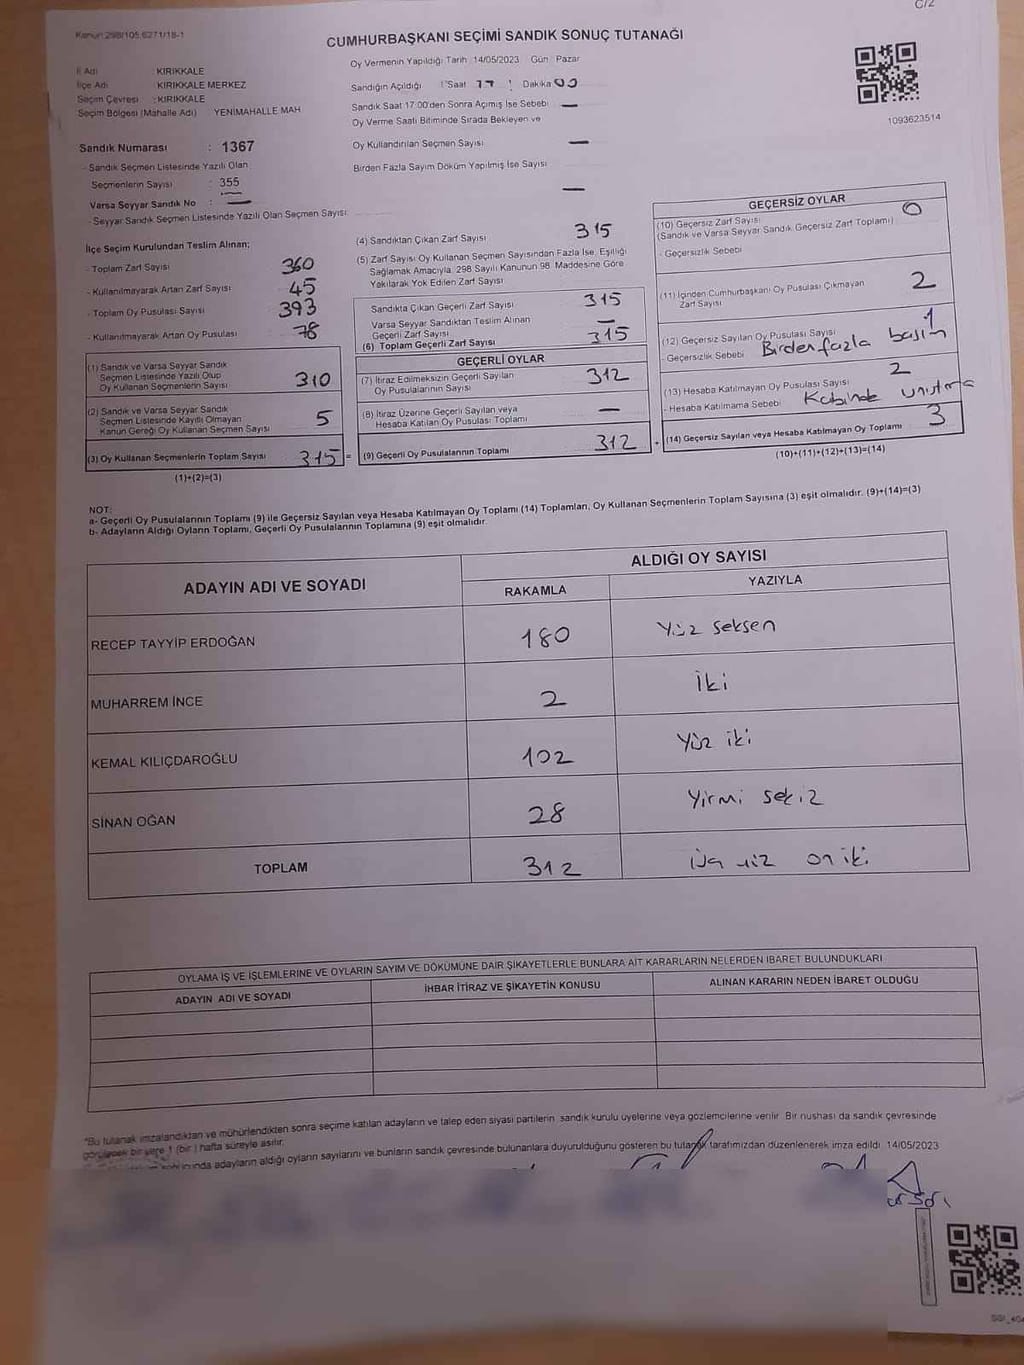 C/2
Kanun:298/105,6271/18-1
CUMHURBAŞKANI SEÇİMİ SANDIK SONUÇ TUTANAĞI
İl Adı : KIRIKKALE
İlçe Adı : KIRIKKALE MERKEZ
Seçim Çevresi : KIRIKKALE
Seçim Bölgesi (Mahalle Adı) YENİMAHALLE MAH
Sandık Numarası : 1367
- Sandık Seçmen Listesinde Yazılı Olan
Seçmenlerin Sayısı : 355
Varsa Seyyar Sandık No : —
- Seyyar Sandık Seçmen Listesinde Yazılı Olan Seçmen Sayısı:
Oy Vermenin Yapıldığı Tarih 14/05/2023 Gün Pazar
Sandığın Açıldığı : Saat 17 Dakika 00
Sandık Saat 17:00'den Sonra Açımış İse Sebebi —
Oy Verme Saati Bitiminde Sırada Bekleyen ve
Oy Kullandırılan Seçmen Sayısı —
Birden Fazla Sayım Döküm Yapılmış İse Sayısı
—
1093623514
İlçe Seçim Kurulundan Teslim Alınan;
- Toplam Zarf Sayısı 360
- Kullanılmayarak Artan Zarf Sayısı 45
- Toplam Oy Pusulası Sayısı 393
- Kullanılmayarak Artan Oy Pusulası 78
(1) Sandık ve Varsa Seyyar Sandık
Seçmen Listesinde Yazılı Olup
Oy Kullanan Seçmenlerin Sayısı 310
(2) Sandık ve Varsa Seyyar Sandık
Seçmen Listesinde Kayıtlı Olmayan
Kanun Gereği Oy Kullanan Seçmen Sayısı 5
(3) Oy Kullanan Seçmenlerin Toplam Sayısı 315 =
(1)+(2)=(3)
(4) Sandıktan Çıkan Zarf Sayısı 315
(5) Zarf Sayısı Oy Kullanan Seçmen Sayısından Fazla İse, Eşitliği
Sağlamak Amacıyla, 298 Sayılı Kanunun 98. Maddesine Göre
Yakılarak Yok Edilen Zarf Sayısı
Sandıkta Çıkan Geçerli Zarf Sayısı 315
Varsa Seyyar Sandıktan Teslim Alınan
Geçerli Zarf Sayısı —
(6) Toplam Geçerli Zarf Sayısı 315
GEÇERLİ OYLAR
(7) İtiraz Edilmeksizin Geçerli Sayılan
Oy Pusulalarının Sayısı 312
(8) İtiraz Üzerine Geçerli Sayılan veya
Hesaba Katılan Oy Pusulası Toplamı —
(9) Geçerli Oy Pusulalarının Toplamı 312 +
GEÇERSİZ OYLAR
(10) Geçersiz Zarf Sayısı 0
(Sandık ve Varsa Seyyar Sandık Geçersiz Zarf Toplamı)
- Geçersizlik Sebebi
(11) İçinden Cumhurbaşkanı Oy Pusulası Çıkmayan
Zarf Sayısı 2
(12) Geçersiz Sayılan Oy Pusulası Sayısı 1
- Geçersizlik Sebebi Birden fazla basım
(13) Hesaba Katılmayan Oy Pusulası Sayısı 2
- Hesaba Katılmama Sebebi Kabinde unutma
(14) Geçersiz Sayılan veya Hesaba Katılmayan Oy Toplamı 3
(10)+(11)+(12)+(13)=(14)
NOT:
a- Geçerli Oy Pusulalarının Toplamı (9) ile Geçersiz Sayılan veya Hesaba Katılmayan Oy Toplamı (14) Toplamları, Oy Kullanan Seçmenlerin Toplam Sayısına (3) eşit olmalıdır. (9)+(14)=(3)
b- Adayların Aldığı Oyların Toplamı, Geçerli Oy Pusulalarının Toplamına (9) eşit olmalıdır.
ADAYIN ADI VE SOYADI
ALDIĞI OY SAYISI
RAKAMLA YAZIYLA
RECEP TAYYİP ERDOĞAN 180 Yüz seksen
MUHARREM İNCE 2 İki
KEMAL KILIÇDAROĞLU 102 Yüz iki
SİNAN OĞAN 28 Yirmi sekiz
TOPLAM 312 on iki
OYLAMA İŞ VE İŞLEMLERİNE VE OYLARIN SAYIM VE DÖKÜMÜNE DAİR ŞİKAYETLERLE BUNLARA AİT KARARLARIN NELERDEN İBARET BULUNDUKLARI
ADAYIN ADI VE SOYADI İHBAR İTİRAZ VE ŞİKAYETİN KONUSU ALINAN KARARIN NEDEN İBARET OLDUĞU
*Bu tutanak imzalandıktan ve mühürlendikten sonra seçime katılan adayların ve talep eden siyasi partilerin sandık kurulu üyelerine veya gözlemcilerine verilir. Bir nushası da sandık çevresinde
görülecek bir yere 1 (bir ) hafta süreyle asılır.
adayların aldığı oyların sayılarını ve bunların sandık çevresinde bulunanlara duyurulduğunu gösteren bu tutanak tarafımızdan düzenlenerek imza edildi. 14/05/2023